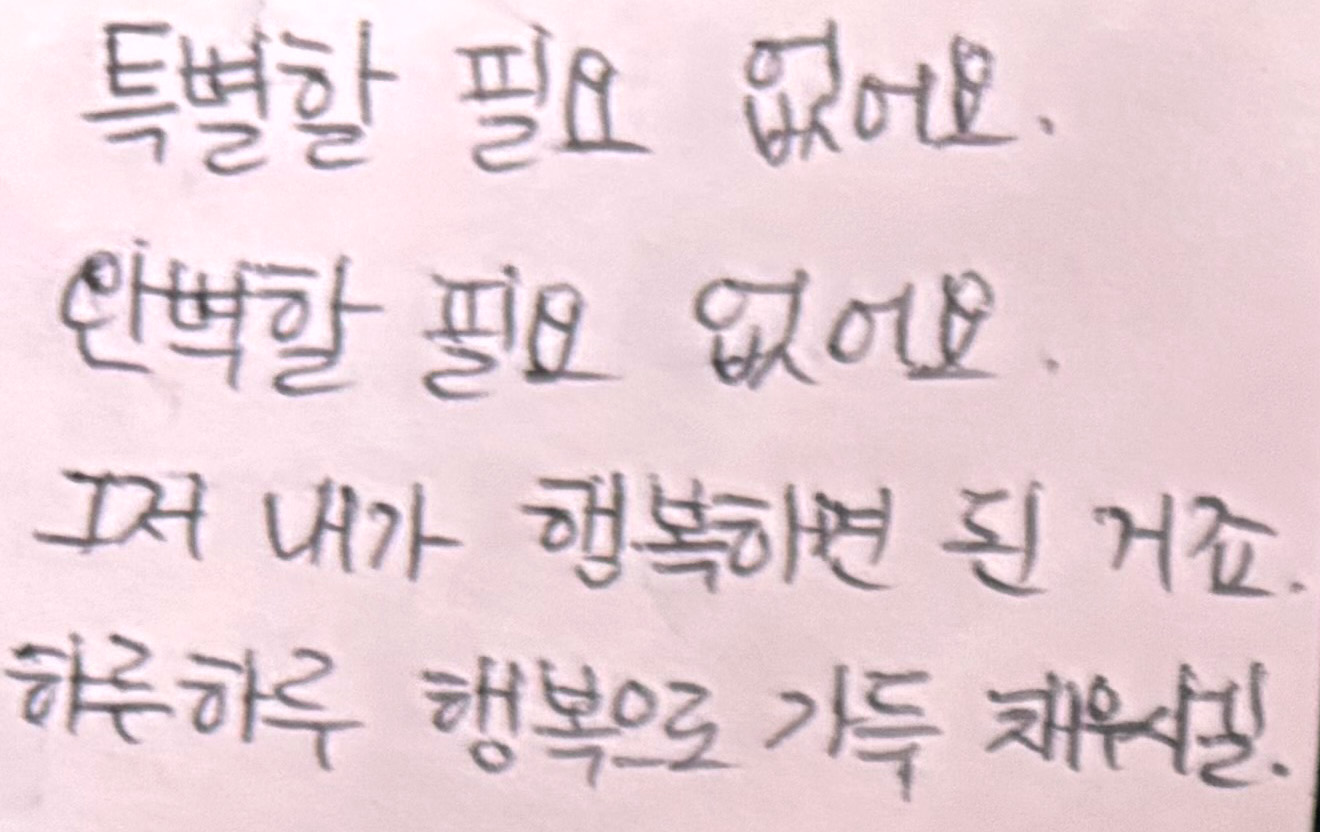 특별할 필요 없어요.
완벽할 필요 없어요.
그저 내가 행복하면 된 거죠.
하루하루 행복으로 가득